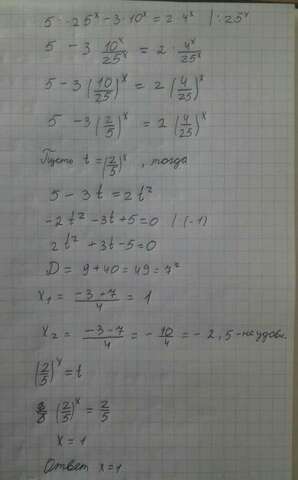 5 · 25ˣ - 3 · 10ˣ = 2 · 4ˣ | : 25ˣ
5 - 3 10ˣ/25ˣ = 2 · 4ˣ/25ˣ
5 - 3 (10/25)ˣ = 2 (4/25)ˣ
5 - 3 (2/5)ˣ = 2 (4/25)ˣ
Пусть t = (2/5)ˣ, тогда
5 - 3t = 2t²
-2t² - 3t + 5 = 0 | (-1)
2t² + 3t - 5 = 0
D = 9 + 40 = 49 = 7²
x₁ = (-3+7)/4 = 1
x₂ = (-3-7)/4 = -10/4 = -2,5 - не удовл.
(2/5)ˣ = t
(2/5)ˣ = 2/5
x = 1
Ответ x = 1